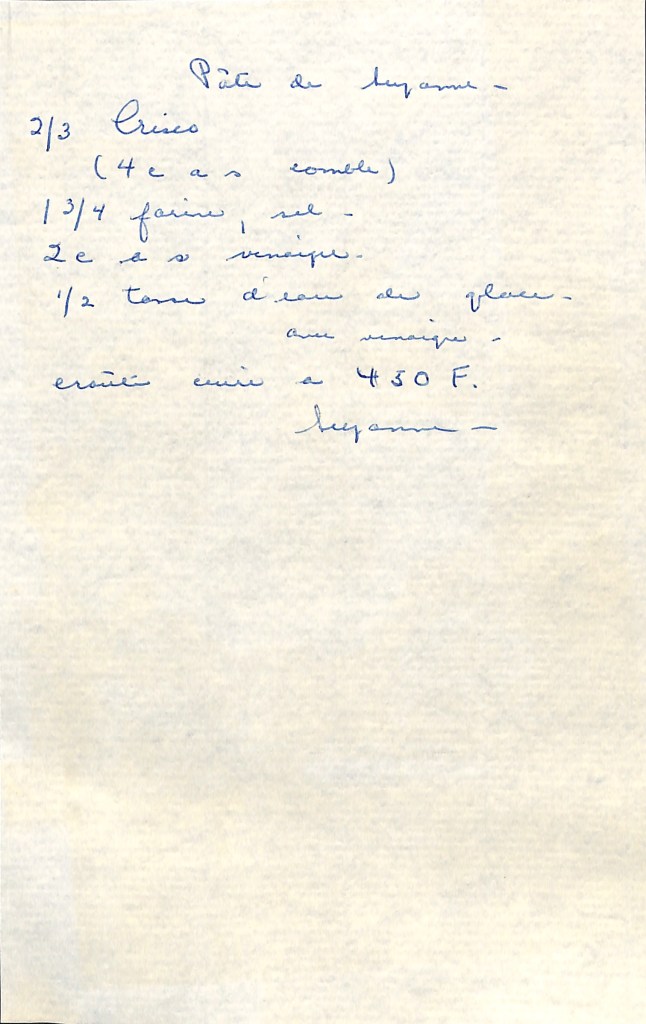 Pâte de Suzanne -
2/3 Crisco
(4 c a s comble)
1 3/4 farine, sel -
2 c a s vinaigre -
1/2 tasse d'eau de glace -
avec vinaigre -
croûte cuire a 450 F.
Suzanne -